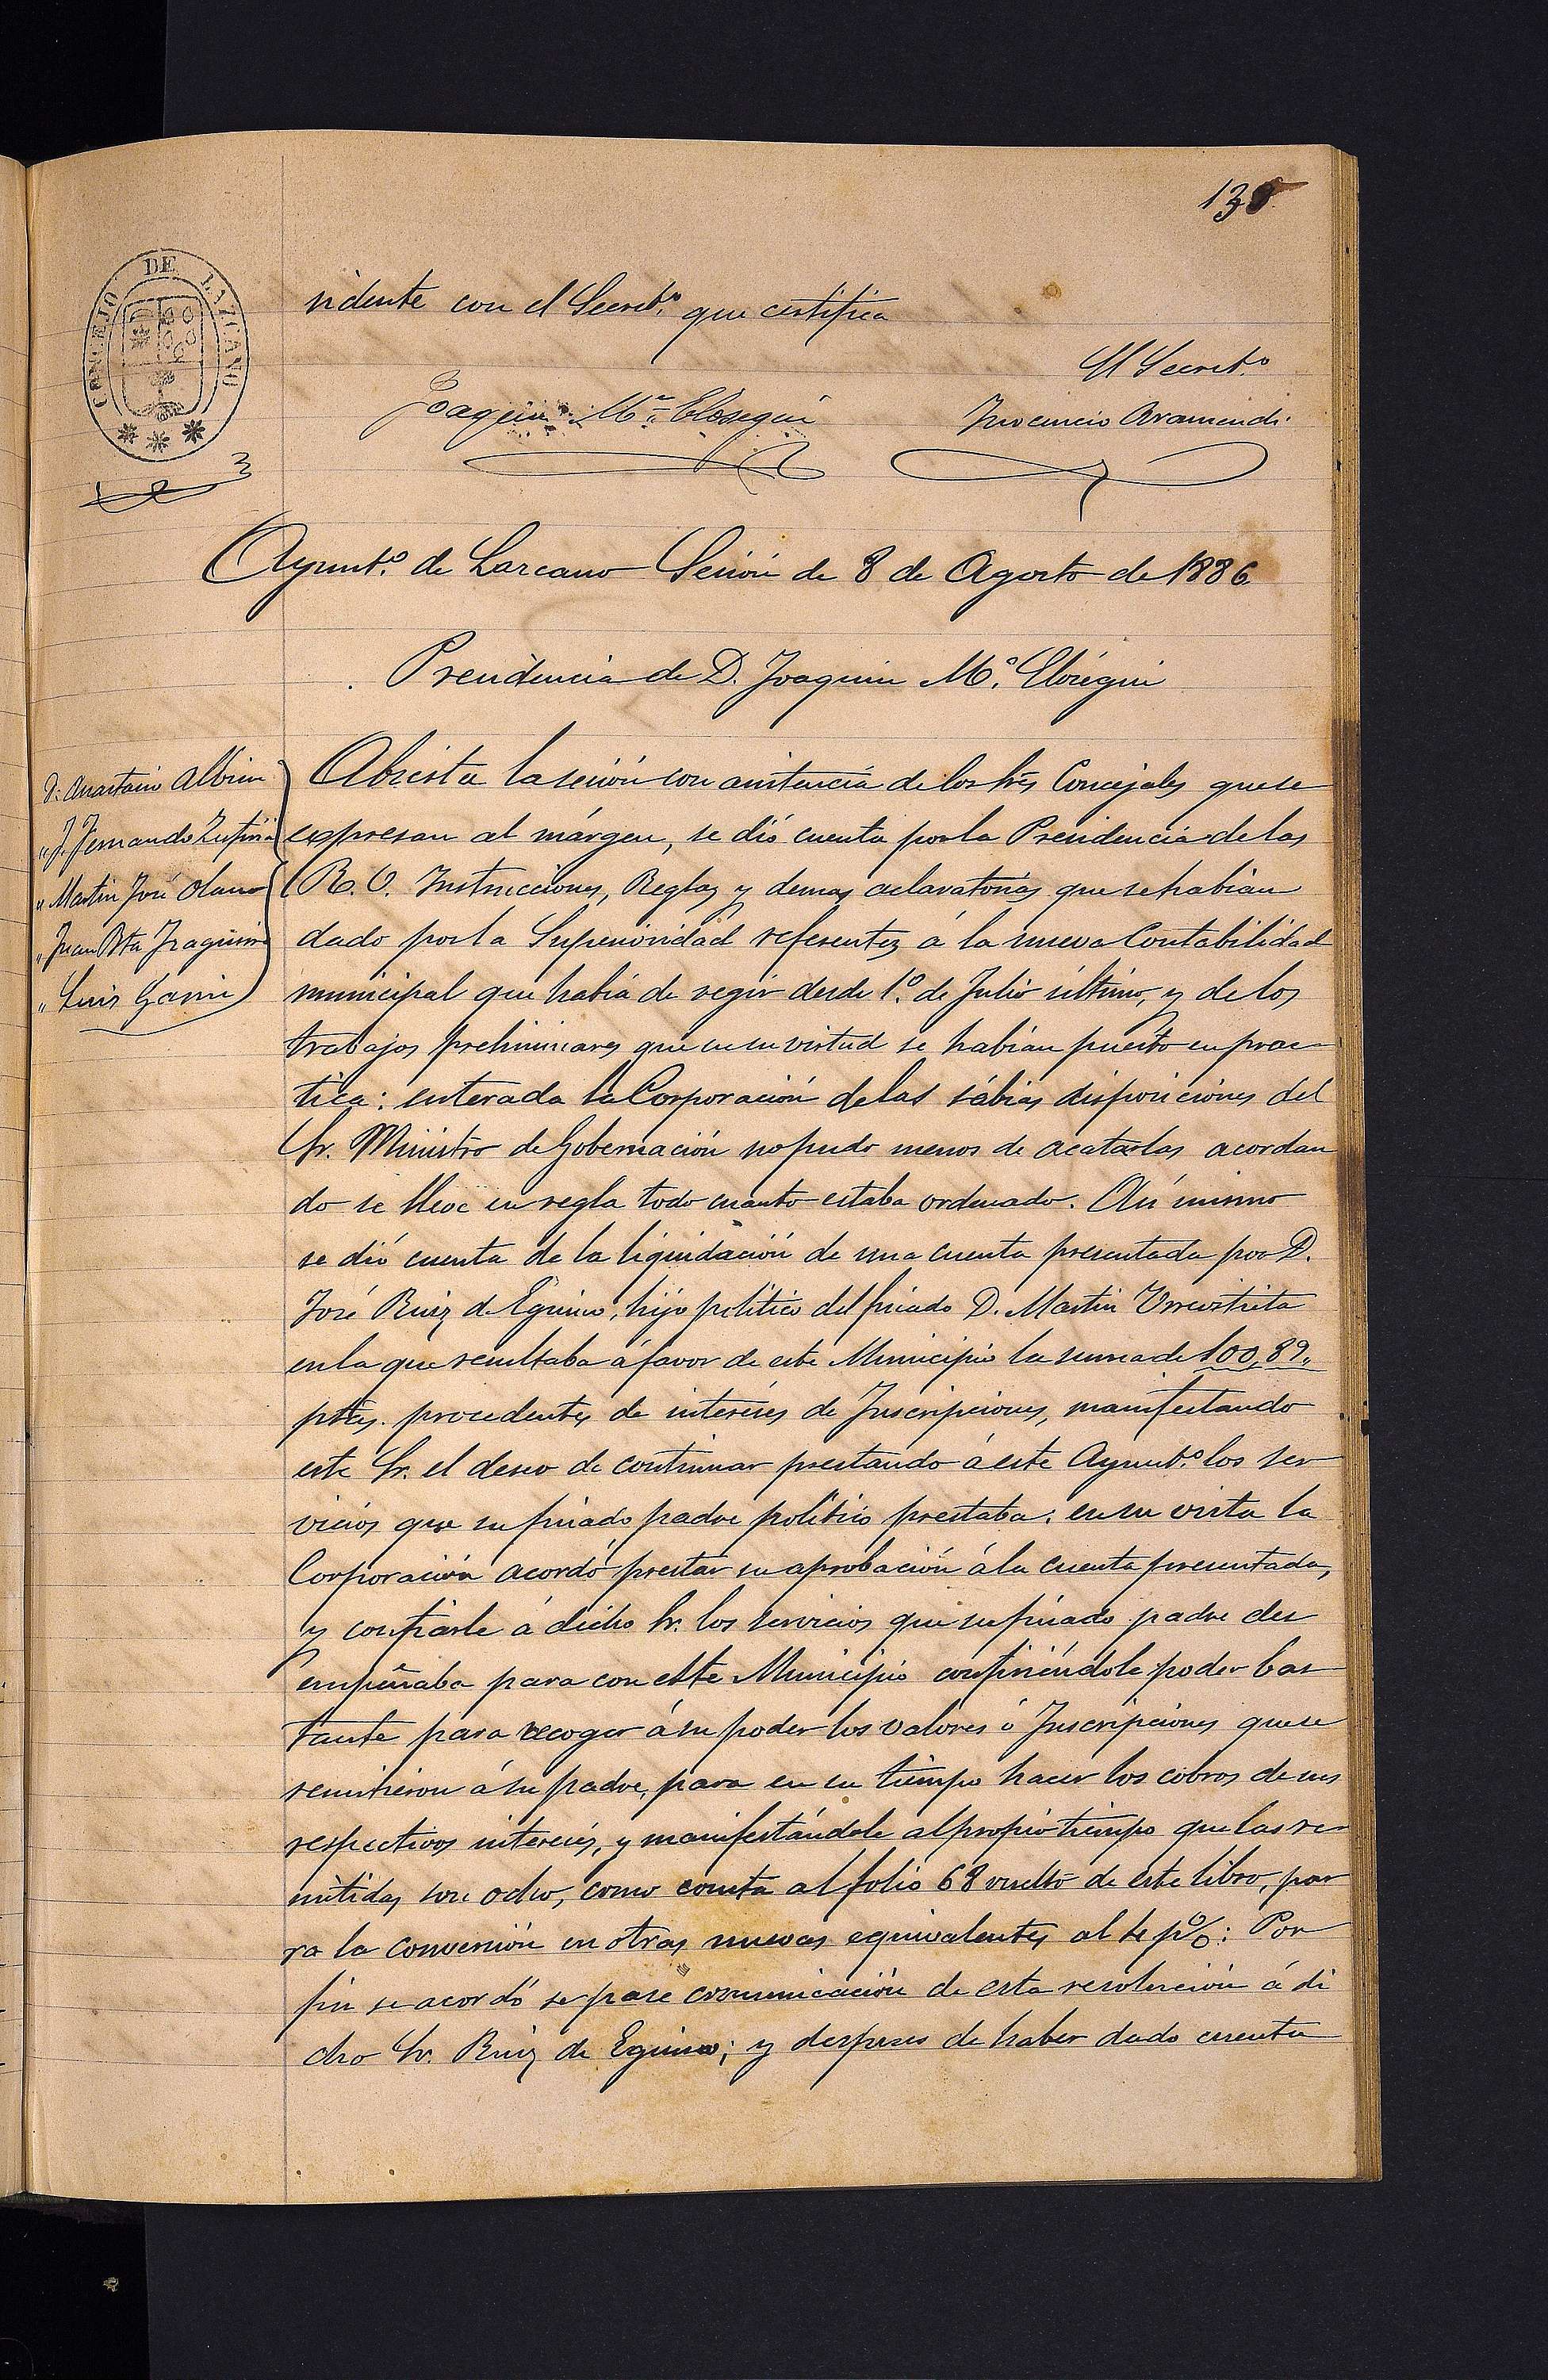 138
CONCEJO DE LAZCANO
sidente con el Secret.º que certifica
El Secret.º
Joaquin M.ª Elosegui
Inocencio Aramendi
3
Ayunt.º de Lazcano Sesión de 8 de Agosto de 1886
Presidencia de D. Joaquin M.ª Elósegui
D. Anastasio Albisu
" J. Fernando
" Martin José Olano
" Juan Bta
" Luis Garin
Abierta la sesión con asistencia de los Sres Concejales que se
expresan al márgen, se dió cuenta por la Presidencia de las
R. O. Instrucciones, Reglas y demas aclaratorias que se habian
dado por la Superioridad referentes á la nueva Contabilidad
municipal que habia de regir desde 1.º de Julio último, y de los
trabajos preliminares que en su virtud se habian puesto en prac
tica: enterada la Corporación de las sábias disposiciones del
Sr. Ministro de Gobernación no pudo menos de acatarlas acordan
do se lleve en regla todo cuanto estaba ordenado. Así mismo
se dió cuenta de la liquidación de una cuenta presentada por D.
José Ruiz de Eguino, hijo politico del finado D. Martin Urreiztieta
en la que resultaba á favor de este Municipio la suma de 100,89,
ptas. procedentes de intereses de Inscripciones, manifestando
este Sr. el deseo de continuar prestando á este Ayunt.º los ser
vicios que su finado padre politico prestaba: en su vista la
Corporación acordó prestar su aprobación á la cuenta presentada,
y confiarle á dicho Sr. los servicios que su finado padre des
empeñaba para con este Municipio confiriéndole poder bas
tante para recoger á su poder los valores ó Inscripciones que se
remitieron á su padre, para en su tiempo hacer los cobros de sus
respectivos intereses, y manifestándole al propio tiempo que las re
mitidas son ocho, como consta al folio 68 vuelto de este libro, pa
ra la conversión en otras nuevas equivalentes al 4 p%: Por
fin se acordó se pase comunicación de esta resolución á di
cho Sr. Ruiz de Eguino; y despues de haber dado cuenta